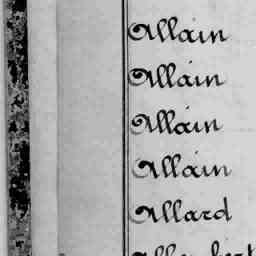 Allain
Allain
Allain
Allain
Allard